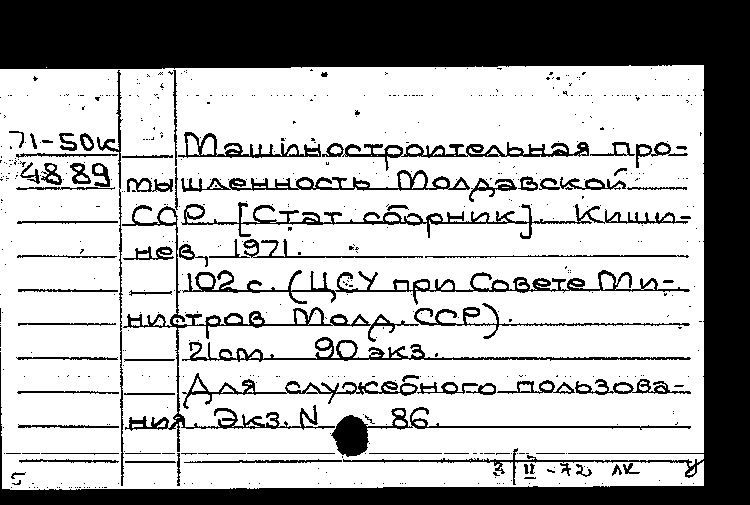 71-50к Машиностроительная про-
4889 мышленность Молдавской
ССР. [Стат. сборник]. Киши-
нев, 1971.
102 с. (ЦСУ при Совете Ми-
нистров Молд. ССР).
21 cm. 90 экз.
Для служебного пользова-
ния. Экз. N 86.
3/II-72 ЛК У
5